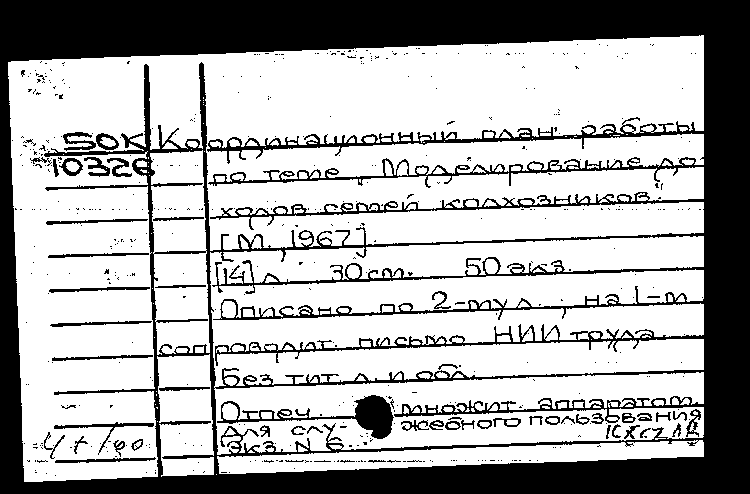 50К Координационный план работы
10326 по теме „Моделирование до-
ходов семей колхозников."
[М., 1967]
[14] л. 30 см. 50 экз.
Описано по 2-му л., на 1-м
сопроводит. письмо НИИ труда
Без тит. л. и обл.
Отпеч. множит. аппаратом.
Для слу- жебного пользования
Экз. N 6.